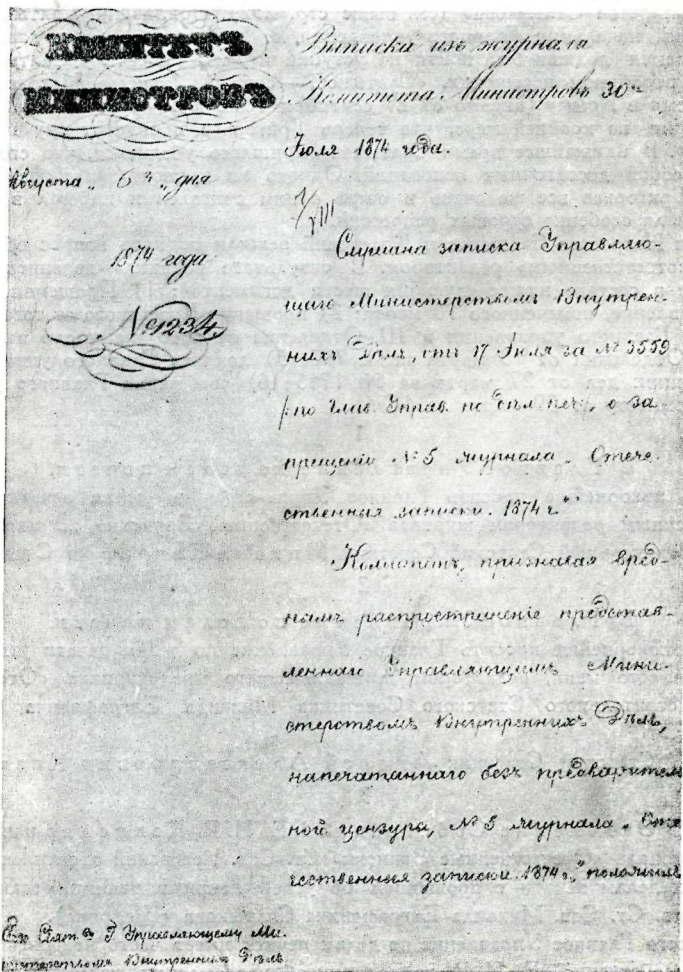 КОМИТЕТЪ
МИНИСТРОВЪ
Августа „ 6 го „ дня
1874 года
№ 1234.
Выписка изъ журнала
Комитета Министровъ 30го
Іюля 1874 года.
Слушана записка Управляю-
щаго Министерствомъ Внутрен-
нихъ Дѣлъ, отъ 17 Іюля за № 3559
/:по Глав. Управ. по дѣл. печ:/, о за-
прещеніи № 5 журнала „Отече-
ственныя записки. 1874 г."
Комитетъ, признавая вред-
нымъ распространіе представ-
леннаго Управляющимъ Мини-
стерствомъ Внутреннихъ Дѣлъ,
напечатаннаго безъ предваритель
ной цензуры, № 5 журнала „Оте
чественныя записки. 1874 г.," положилъ
Его Сіят. ву Г. Управляющему Ми-
нистерствомъ Внутреннихъ Дѣлъ